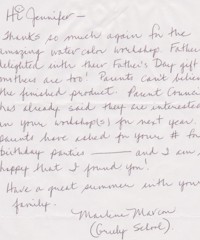 Hi Jennifer –
Thanks so much again for the
amazing watercolor workshop. Fathers
delighted with their Father's Day gift
mothers are too! Parents can't believe
the finished product. Parent Council
has already said they are interested
in your workshop(s) for next year.
parents have asked for your # for
birthday parties — and I am
happy that I found you!
Have a great summer with your
family.
Marlene
(Greely School)